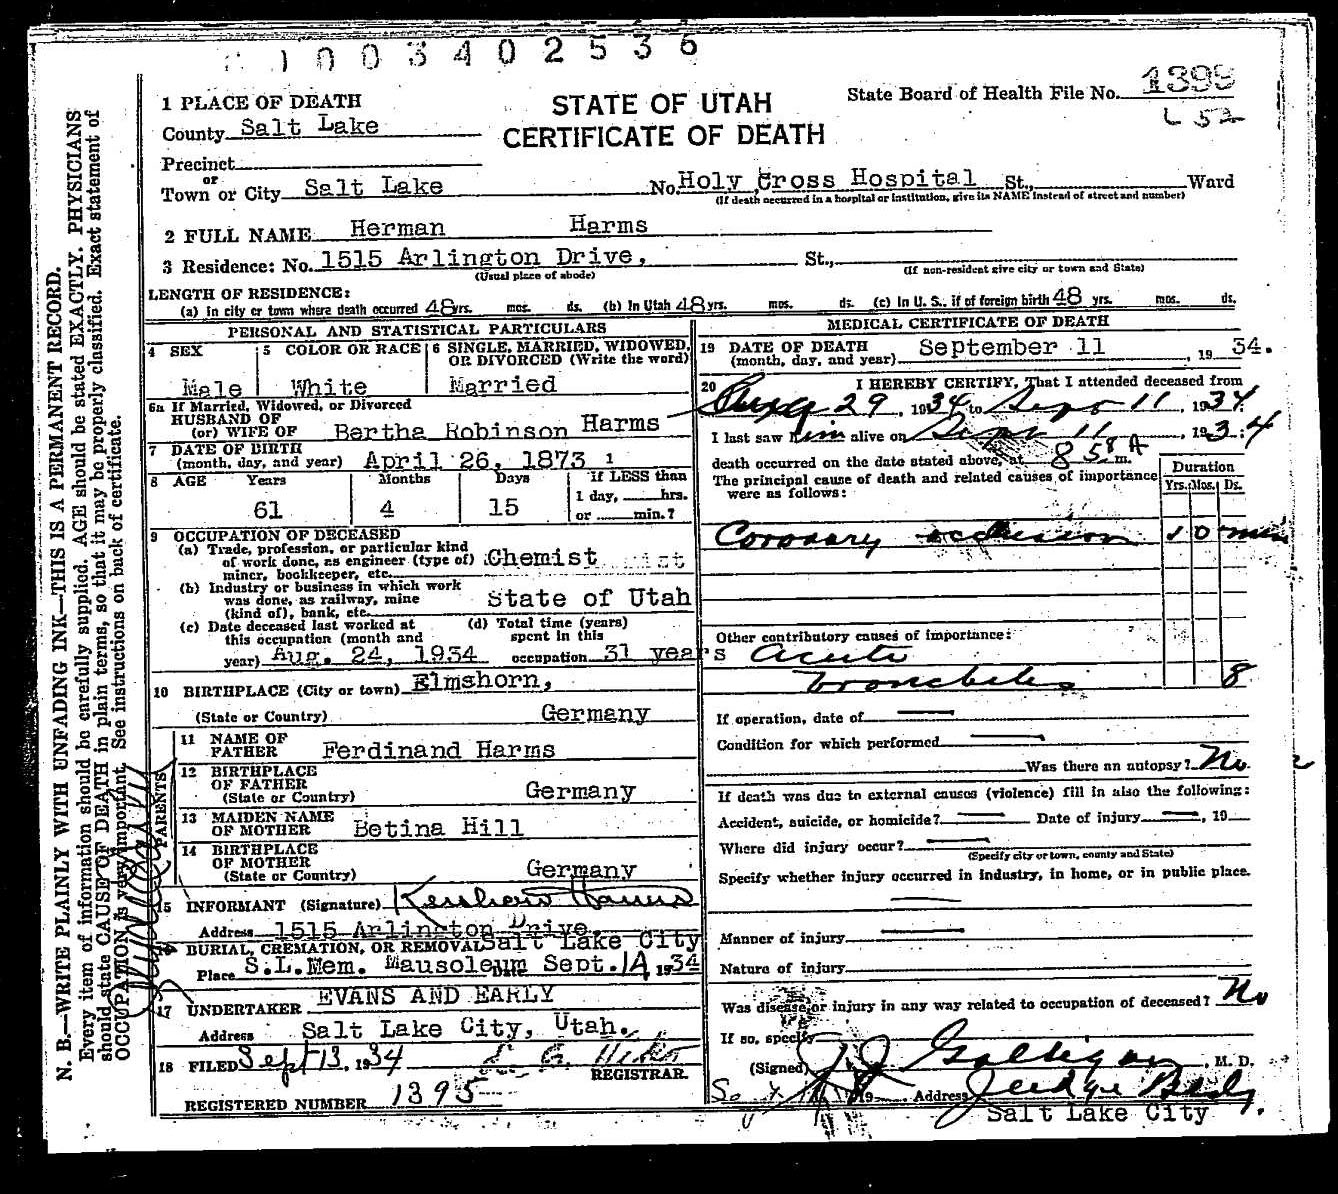 1 0 0 3 4 0 2 5 3 6
1 PLACE OF DEATH
STATE OF UTAH
CERTIFICATE OF DEATH
State Board of Health File No. 1395
L 52
County Salt Lake
Precinct
or
Town or City Salt Lake No. Holy Cross Hospital St., Ward
(If death occurred in a hospital or institution, give its NAME instead of street and number)
2 FULL NAME Herman Harms
3 Residence: No. 1515 Arlington Drive, St.,
(Usual place of abode) (If non-resident give city or town and State)
LENGTH OF RESIDENCE:
(a) in city or town where death occurred 48 yrs. mos. ds. (b) In Utah 48 yrs. mos. ds. (c) In U. S., if of foreign birth 48 yrs. mos. ds.
PERSONAL AND STATISTICAL PARTICULARS
4 SEX 5 COLOR OR RACE 6 SINGLE, MARRIED, WIDOWED, OR DIVORCED (Write the word)
Male White Married
6a If Married, Widowed, or Divorced
HUSBAND OF
(or) WIFE OF Bertha Robinson Harms
7 DATE OF BIRTH
(month, day, and year) April 26, 1873 1
8 AGE Years Months Days If LESS than
1 day, hrs.
61 4 15 or min.?
9 OCCUPATION OF DECEASED
(a) Trade, profession, or particular kind
of work done, as engineer (type of) Chemist
miner, bookkeeper, etc.
(b) Industry or business in which work
was done, as railway, mine State of Utah
(kind of), bank, etc.
(c) Date deceased last worked at (d) Total time (years)
this occupation (month and spent in this
year) Aug. 24, 1934 occupation 31 years
10 BIRTHPLACE (City or town) Elmshorn,
(State or Country) Germany
PARENTS
11 NAME OF
FATHER Ferdinand Harms
12 BIRTHPLACE
OF FATHER
(State or Country) Germany
13 MAIDEN NAME
OF MOTHER Betina Hill
14 BIRTHPLACE
OF MOTHER
(State or Country) Germany
15 INFORMANT (Signature) Kershaw Harms
Address 1515 Arlington Drive,
16 BURIAL, CREMATION, OR REMOVAL Salt Lake City
Place S.L.Mem. Mausoleum Date Sept. 14 1934
17 UNDERTAKER EVANS AND EARLY
Address Salt Lake City, Utah.
18 FILED Sept 13, 1934
REGISTRAR.
REGISTERED NUMBER 1395
MEDICAL CERTIFICATE OF DEATH
19 DATE OF DEATH
(month, day, and year) September 11, 1934.
20 I HEREBY CERTIFY, That I attended deceased from
Aug 29, 1934 to Sept 11, 1934
I last saw him alive on Sept 11, 1934
death occurred on the date stated above, at 8 58 A m.
The principal cause of death and related causes of importance
were as follows:
Duration
Yrs. Mos. Ds.
Coronary occlusion 10 min
Other contributory causes of importance:
Acute
bronchitis 8
If operation, date of —
Condition for which performed —
Was there an autopsy? No
If death was due to external causes (violence) fill in also the following:
Accident, suicide, or homicide? — Date of injury —, 19
Where did injury occur? —
(Specify city or town, county and State)
Specify whether injury occurred in industry, in home, or in public place.
—
Manner of injury —
Nature of injury
Was disease or injury in any way related to occupation of deceased? No
If so, specify
(Signed) Galligan, M. D.
19 Address Judge Bldg.
Salt Lake City
N. B.—WRITE PLAINLY WITH UNFADING INK—THIS IS A PERMANENT RECORD.
Every item of information should be carefully supplied. AGE should be stated EXACTLY. PHYSICIANS
should state CAUSE OF DEATH in plain terms, so that it may be properly classified. Exact statement of
OCCUPATION is very important. See instructions on back of certificate.